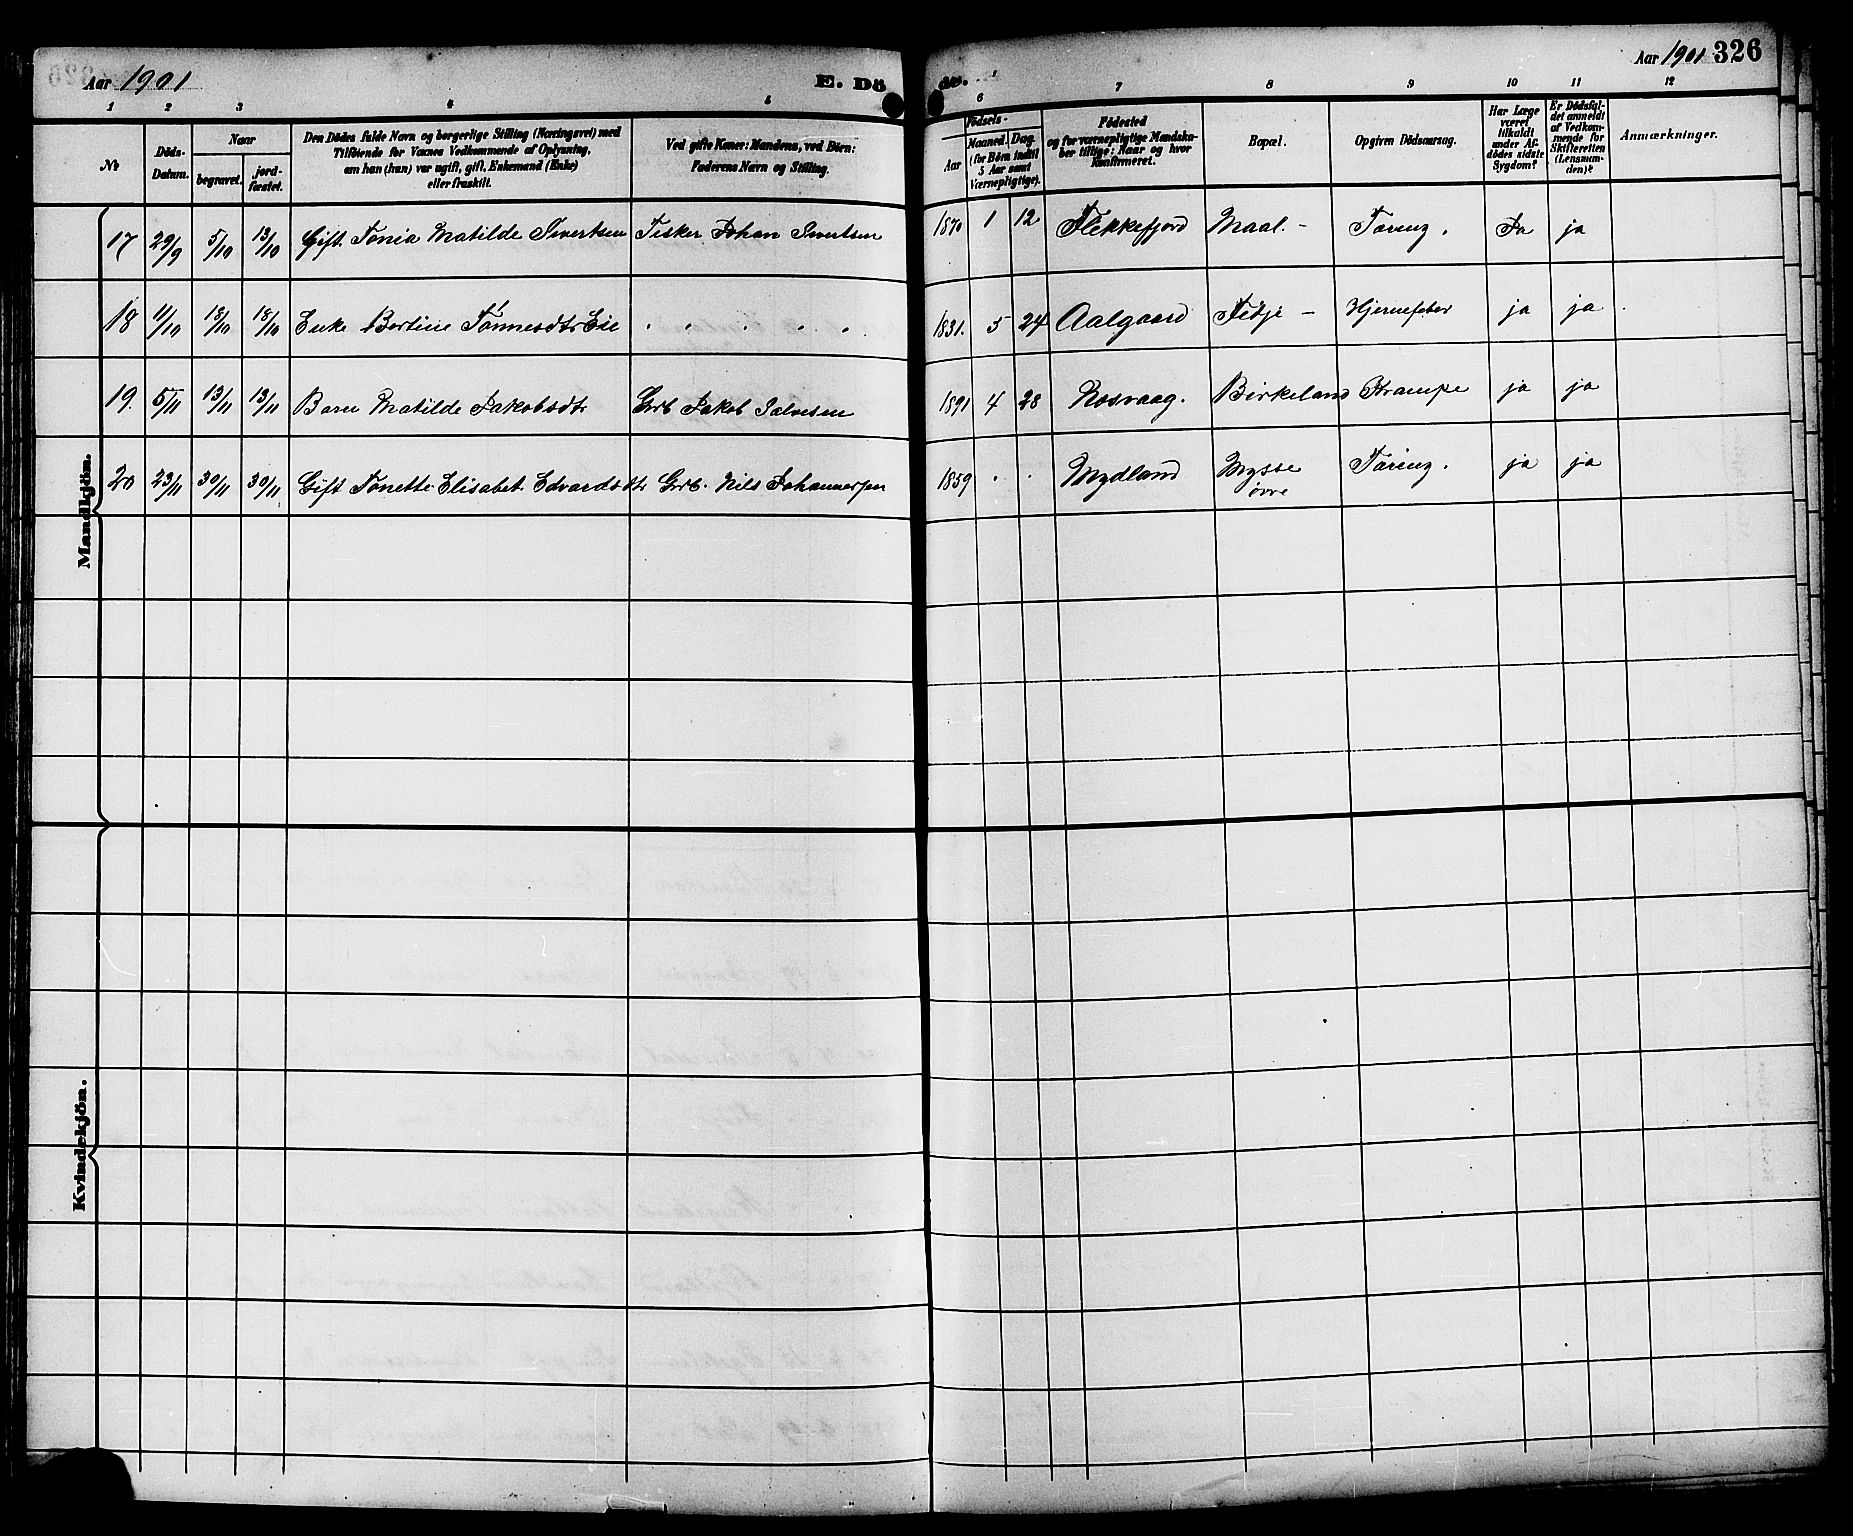 Aar 1901
E. Dö
de.
Aar 1901 326
1 2 3 4 5 6 7 8 9 10 11 12
No
Döds-Datum.
Naar
begravet.
jord-fæstet.
Den Dödes fulde Navn og borgerlige Stilling (Næringsvei) med
Tilföiende for Voxnes Vedkommende af Oplysning,
om han (hun) var ugift, gift, Enkemand (Enke)
eller fraskilt.
Ved gifte Koner: Mandens, ved Börn:
Faderens Navn og Stilling.
Födsels-
Aar
Maaned. Dag.
(for Börn indtil
5 Aar samt
Værnepligtige).
Födested
og for værnepligtige Mandska-
ber tillige: Naar og hvor
konfirmeret.
Bopæl.
Opgiven Dödsaarsag.
Har Læge
været
tilkaldt
under Af-
dödes sidste
Sygdom?
Er Dödsfal-
det anmeldt
af Vedkom-
mende for
Skifteretten
(Lensman-
den)?
Anmærkninger.
17 29/9 5/10 13/10 Gift Tonia Matilde Sivertsen Fisker Johan Sivertsen 1870 1 12 Flekkefjord Maal. - Tæring. Ja ja
18 11/10 18/10 18/10 Enke Bertine Tønnesdtr Eie " " " " " 1831. 5 24 Aalgaard Fidje - Hjernefeber ja ja
19. 5/11 13/11 13/11 Barn Matilde Jakobsdtr Grb Jakob Salvesen 1891 4 28 Rosvaag. Birkeland Krampe ja ja
20 23/11 30/11 30/11 Gift Tonette Elisabet Edvardsdtr Grb. Nils Johannesen 1859 " " Mydland Mysse øvre Tæring. ja ja
Mandkjön.
Kvindekjön.